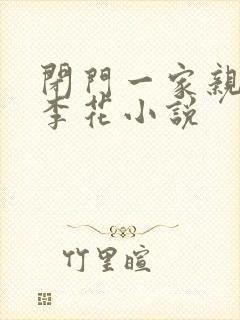 閉門一家親
李花小說
竹里暄